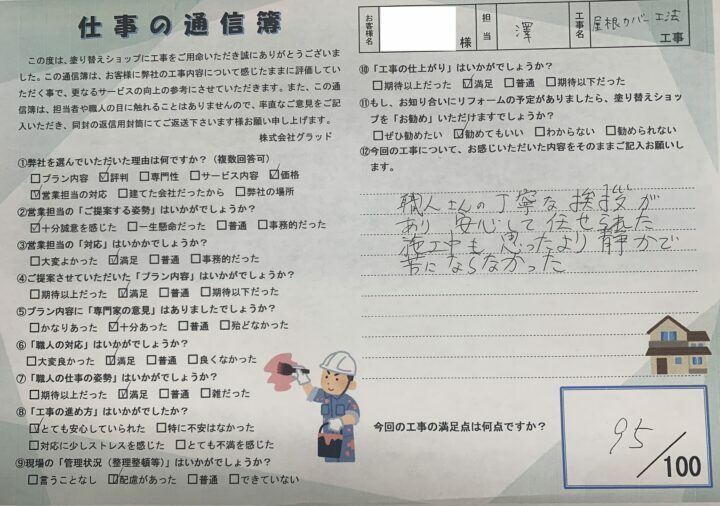 仕事の通信簿
この度は、塗り替えショップに工事をご用命いただき誠にありがとうございま
した。この通信簿は、お客様に弊社の工事内容について感じたままに評価してい
ただく事で、更なるサービスの向上の参考にさせていただきます。また、この通
信簿は、担当者や職人の目に触れることはありませんので、率直なご意見をご記
入いただき、同封の返信用封筒にてご返送下さいます様お願い申し上げます。
株式会社グラッド
①弊社を選んでいただいた理由は何ですか?(複数回答可)
□プラン内容 ☑評判 □専門性 □サービス内容 ☑価格
☑営業担当の対応 □建てた会社だったから □弊社の場所
②営業担当の「ご提案する姿勢」はいかがでしょうか?
☑十分誠意を感じた □一生懸命だった □普通 □事務的だった
③営業担当の「対応」はいかがでしょうか?
□大変よかった ☑満足 □普通 □事務的だった
④ご提案させていただいた「プラン内容」はいかがでしょうか?
□期待以上だった ☑満足 □普通 □期待以下だった
⑤プラン内容に「専門家の意見」はありましたでしょうか?
□かなりあった ☑十分あった □普通 □殆どなかった
⑥「職人の対応」はいかがでしょうか?
□大変良かった ☑満足 □普通 □良くなかった
⑦「職人の仕事の姿勢」はいかがでしょうか?
□期待以上だった ☑満足 □普通 □雑だった
⑧「工事の進め方」はいかがでしたか?
☑とても安心していられた □特に不安はなかった
□対応に少しストレスを感じた □とても不満を感じた
⑨現場の「管理状況(整理整頓等)」はいかがでしょうか?
□言うことなし ☑配慮があった □普通 □できていない
お客様名 様 担当 澤 工事名 屋根カバー工法 工事
⑩「工事の仕上がり」はいかがでしょうか?
□期待以上だった ☑満足 □普通 □期待以下だった
⑪もし、お知り合いにリフォームの予定がありましたら、塗り替えショッ
プを「お勧め」いただけますでしょうか?
□ぜひ勧めたい ☑勧めてもいい □わからない □勧められない
⑫今回の工事について、お感じいただいた内容をそのままご記入お願いし
ます。
職人さんの丁寧な挨拶が
あり 安心して任せられた
施工中も思ったより静かで
苦にならなかった
今回の工事の満足点は何点ですか?
95/100